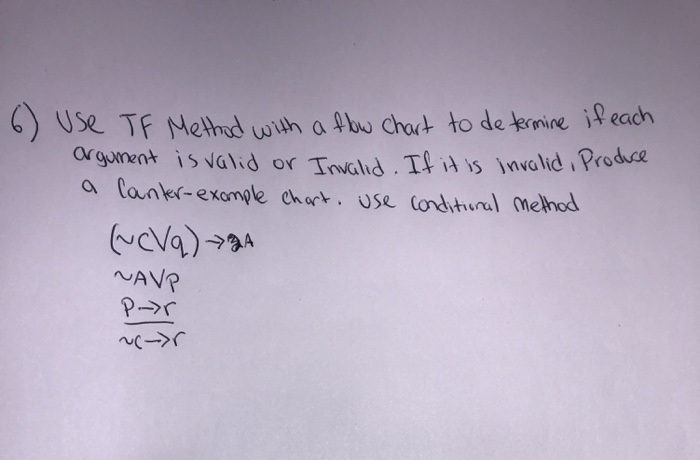 6) Use TF Method with a flow chart to determine if each
argument is valid or Invalid. If it is invalid, Produce
a Counter-example chart. Use Conditional Method
(~C∨q)→A
~A∨p
P→r
~C→r